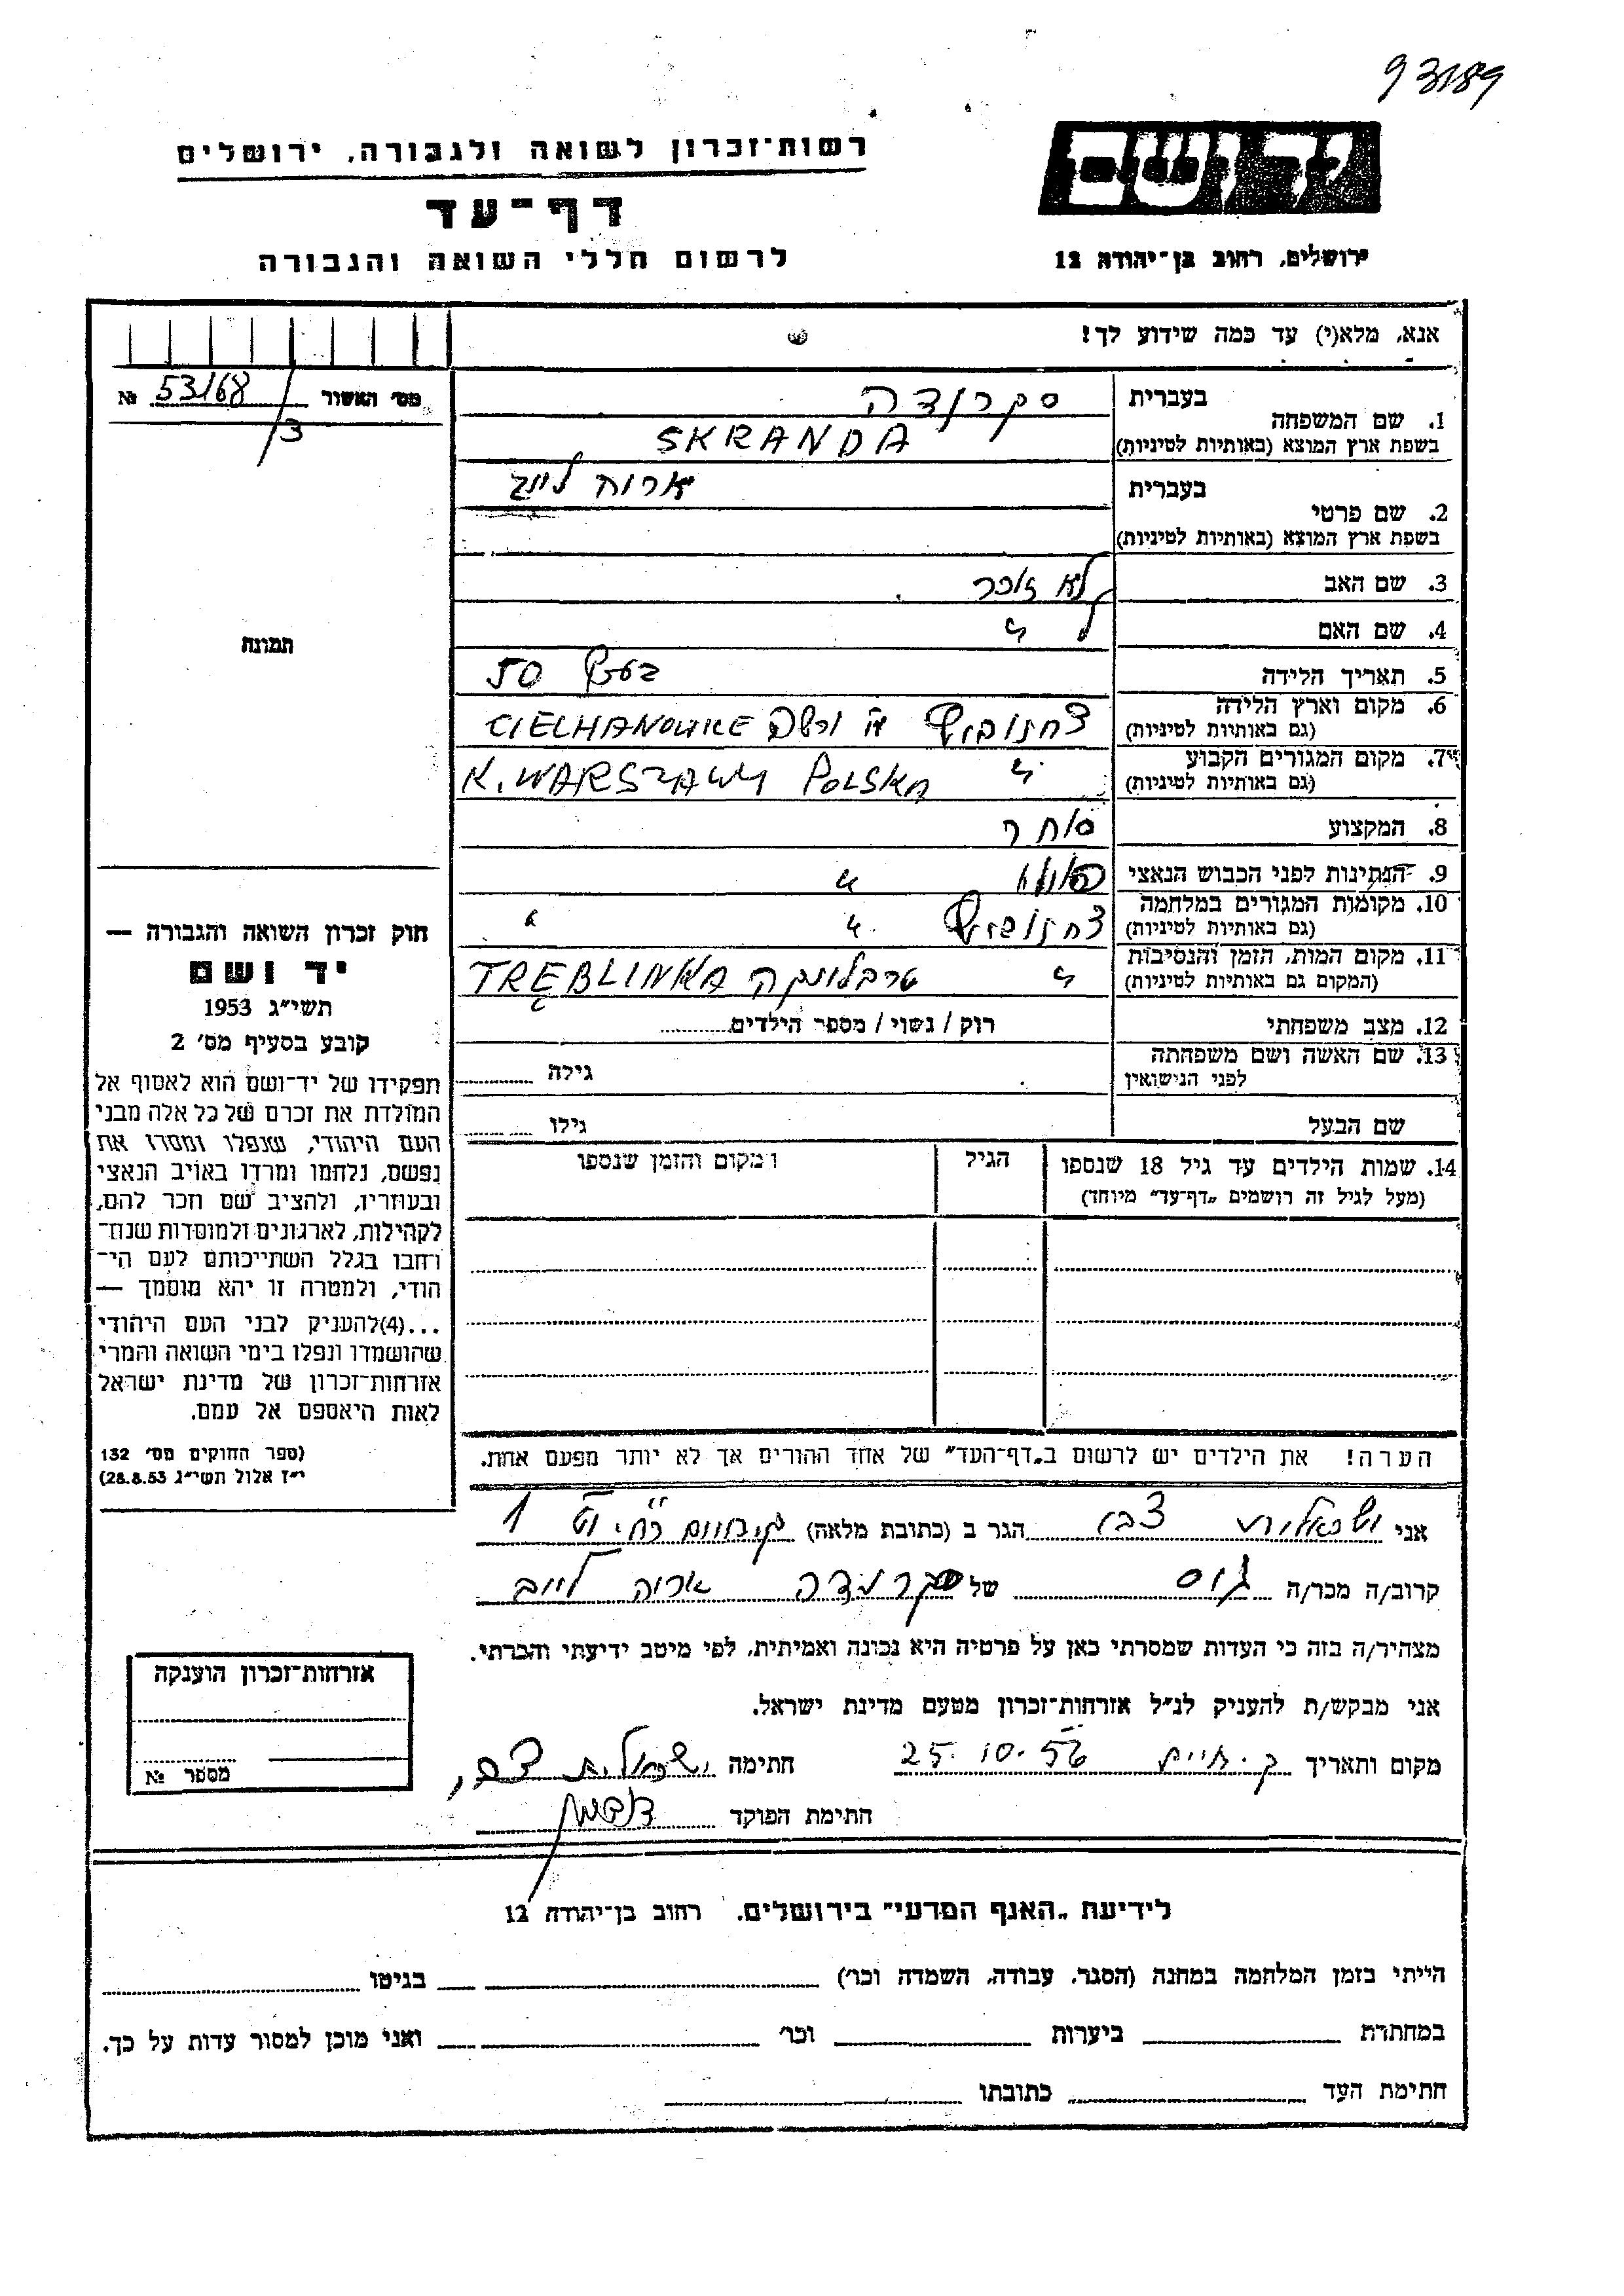 93189
רשות־זכרון לשואה ולגבורה, ירושלים
דף־עד
לרשום חללי השואה והגבורה
יד ושם
ירושלים, רחוב בן־יהודה 12
אנא, מלא(י) עד כמה שידוע לך!
מס׳ האשור 53168 №
/3
תמונה
1. שם המשפחה בעברית סקרנדה
בשפת ארץ המוצא (באותיות לטיניות) SKRANDA
2. שם פרטי בעברית אריה לייב
בשפת ארץ המוצא (באותיות לטיניות)
3. שם האב לא זוכר
4. שם האם ל״
5. תאריך הלידה 50
6. מקום וארץ הלידה CIELHANOWKE
(גם באותיות לטיניות)
7. מקום המגורים הקבוע ״ K. WARSZAWY POLSKA
(גם באותיות לטיניות)
8. המקצוע סוחר
9. הנתינות לפני הכבוש הנאצי ״
10. מקומות המגורים במלחמה ״ ״
(גם באותיות לטיניות)
11. מקום המות, הזמן והנסיבות ״ טרבלינקה TREBLINKA
(המקום גם באותיות לטיניות)
12. מצב משפחתי רוק / נשוי / מספר הילדים
13. שם האשה ושם משפחתה גילה
לפני הנישואין
שם הבעל גילו
14. שמות הילדים עד גיל 18 שנספו הגיל ומקום והזמן שנספו
(מעל לגיל זה רושמים „דף־עד״ מיוחד)
חוק זכרון השואה והגבורה —
יד ושם
תשי״ג 1953
קובע בסעיף מס׳ 2
תפקידו של יד־ושם הוא לאסוף אל
המולדת את זכרם של כל אלה מבני
העם היהודי, שנפלו ומסרו את
נפשם, נלחמו ומרדו באויב הנאצי
ובעוזריו, ולהציב שם וזכר להם,
לקהילות, לארגונים ולמוסדות שנח־
רחבו בגלל השתייכותם לעם הי־
הודי, ולמטרה זו יהא מוסמך —
...(4)להעניק לבני העם היהודי
שהושמדו ונפלו בימי השואה והמרי
אזרחות־זכרון של מדינת ישראל
לאות היאספם אל עמם.
(ספר החוקים מס׳ 132
י״ז אלול תשי״ג 28.8.53)
הערה! את הילדים יש לרשום ב„דף־העד״ של אחד ההורים אך לא יותר מפעם אחת.
אני צבי הגר ב (כתובת מלאה) 1
קרוב/ה מכר/ה גיס של סקרנדה אריה לייב
מצהיר/ה בזה כי העדות שמסרתי כאן על פרטיה היא נכונה ואמיתית, לפי מיטב ידיעתי והכרתי.
אני מבקש/ת להעניק לנ״ל אזרחות־זכרון מטעם מדינת ישראל.
מקום ותאריך ק. חיים 25.10.56 חתימה
חתימת הפוקד
אזרחות־זכרון הוענקה
מספר №
לידיעת „האגף המדעי״ בירושלים, רחוב בן־יהודה 12
הייתי בזמן המלחמה במחנה (הסגר, עבודה, השמדה וכו׳) בגיטו
במחתרת ביערות וכו׳ ואני מוכן למסור עדות על כך.
חתימת העד כתובתו